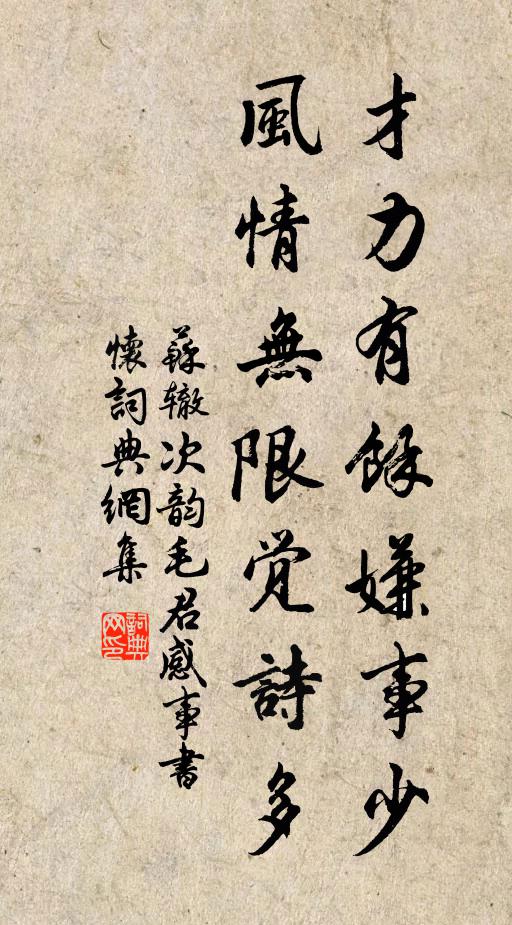 才力有餘嫌事少
風情無限覺詩多
蘇辙次韵毛君感事書
懷詞典網集
詞典
网印